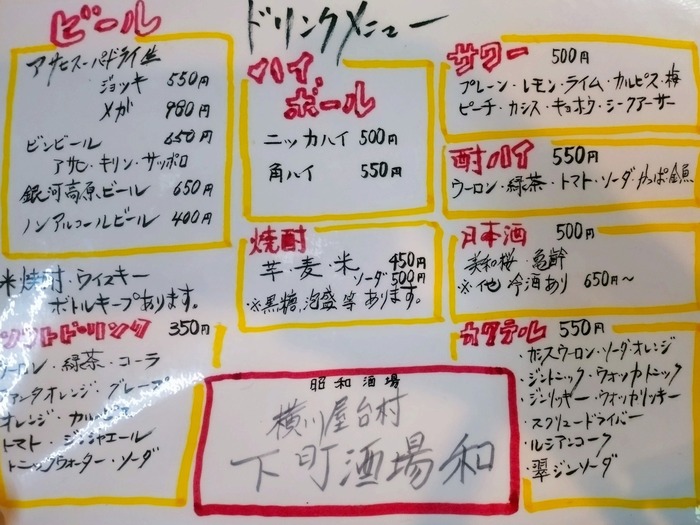 ドリンクメニュー
ビール
アサヒスーパードライ生
ジョッキ 550円
メガ 980円
ビンビール 650円
アサヒ・キリン・サッポロ
銀河高原ビール 650円
ノンアルコールビール 400円
米焼酎・ウイスキー
ボトルキープあります。
ソフトドリンク 350円
ウーロン・緑茶・コーラ
ファンタオレンジ・グレープ
オレンジ・カルピス
トマト・ジンジャエール
トニックウォーター・ソーダ
ハイ.
ボール
ニッカハイ 500円
角ハイ 550円
焼酎
芋・麦・米 450円
ソーダ 500円
※黒糖、泡盛等あります。
サワー 500円
プレーン・レモン・ライム・カルピス・梅
ピーチ・カシス・キョホウ・シークアーサー
酎ハイ 550円
ウーロン・緑茶・トマト・ソーダ・かっぱ・金魚
日本酒 500円
美和桜・亀齢
※他 冷酒あり 650円～
カクテル 550円
・カシスウーロン・ソーダ・オレンジ
・ジントニック・ウォッカトニック
・ジンリッキー・ウォッカリッキー
・スクリュードライバー
・ルシアンコーク
・翠ジンソーダ
昭和酒場
横川屋台村
下町酒場和